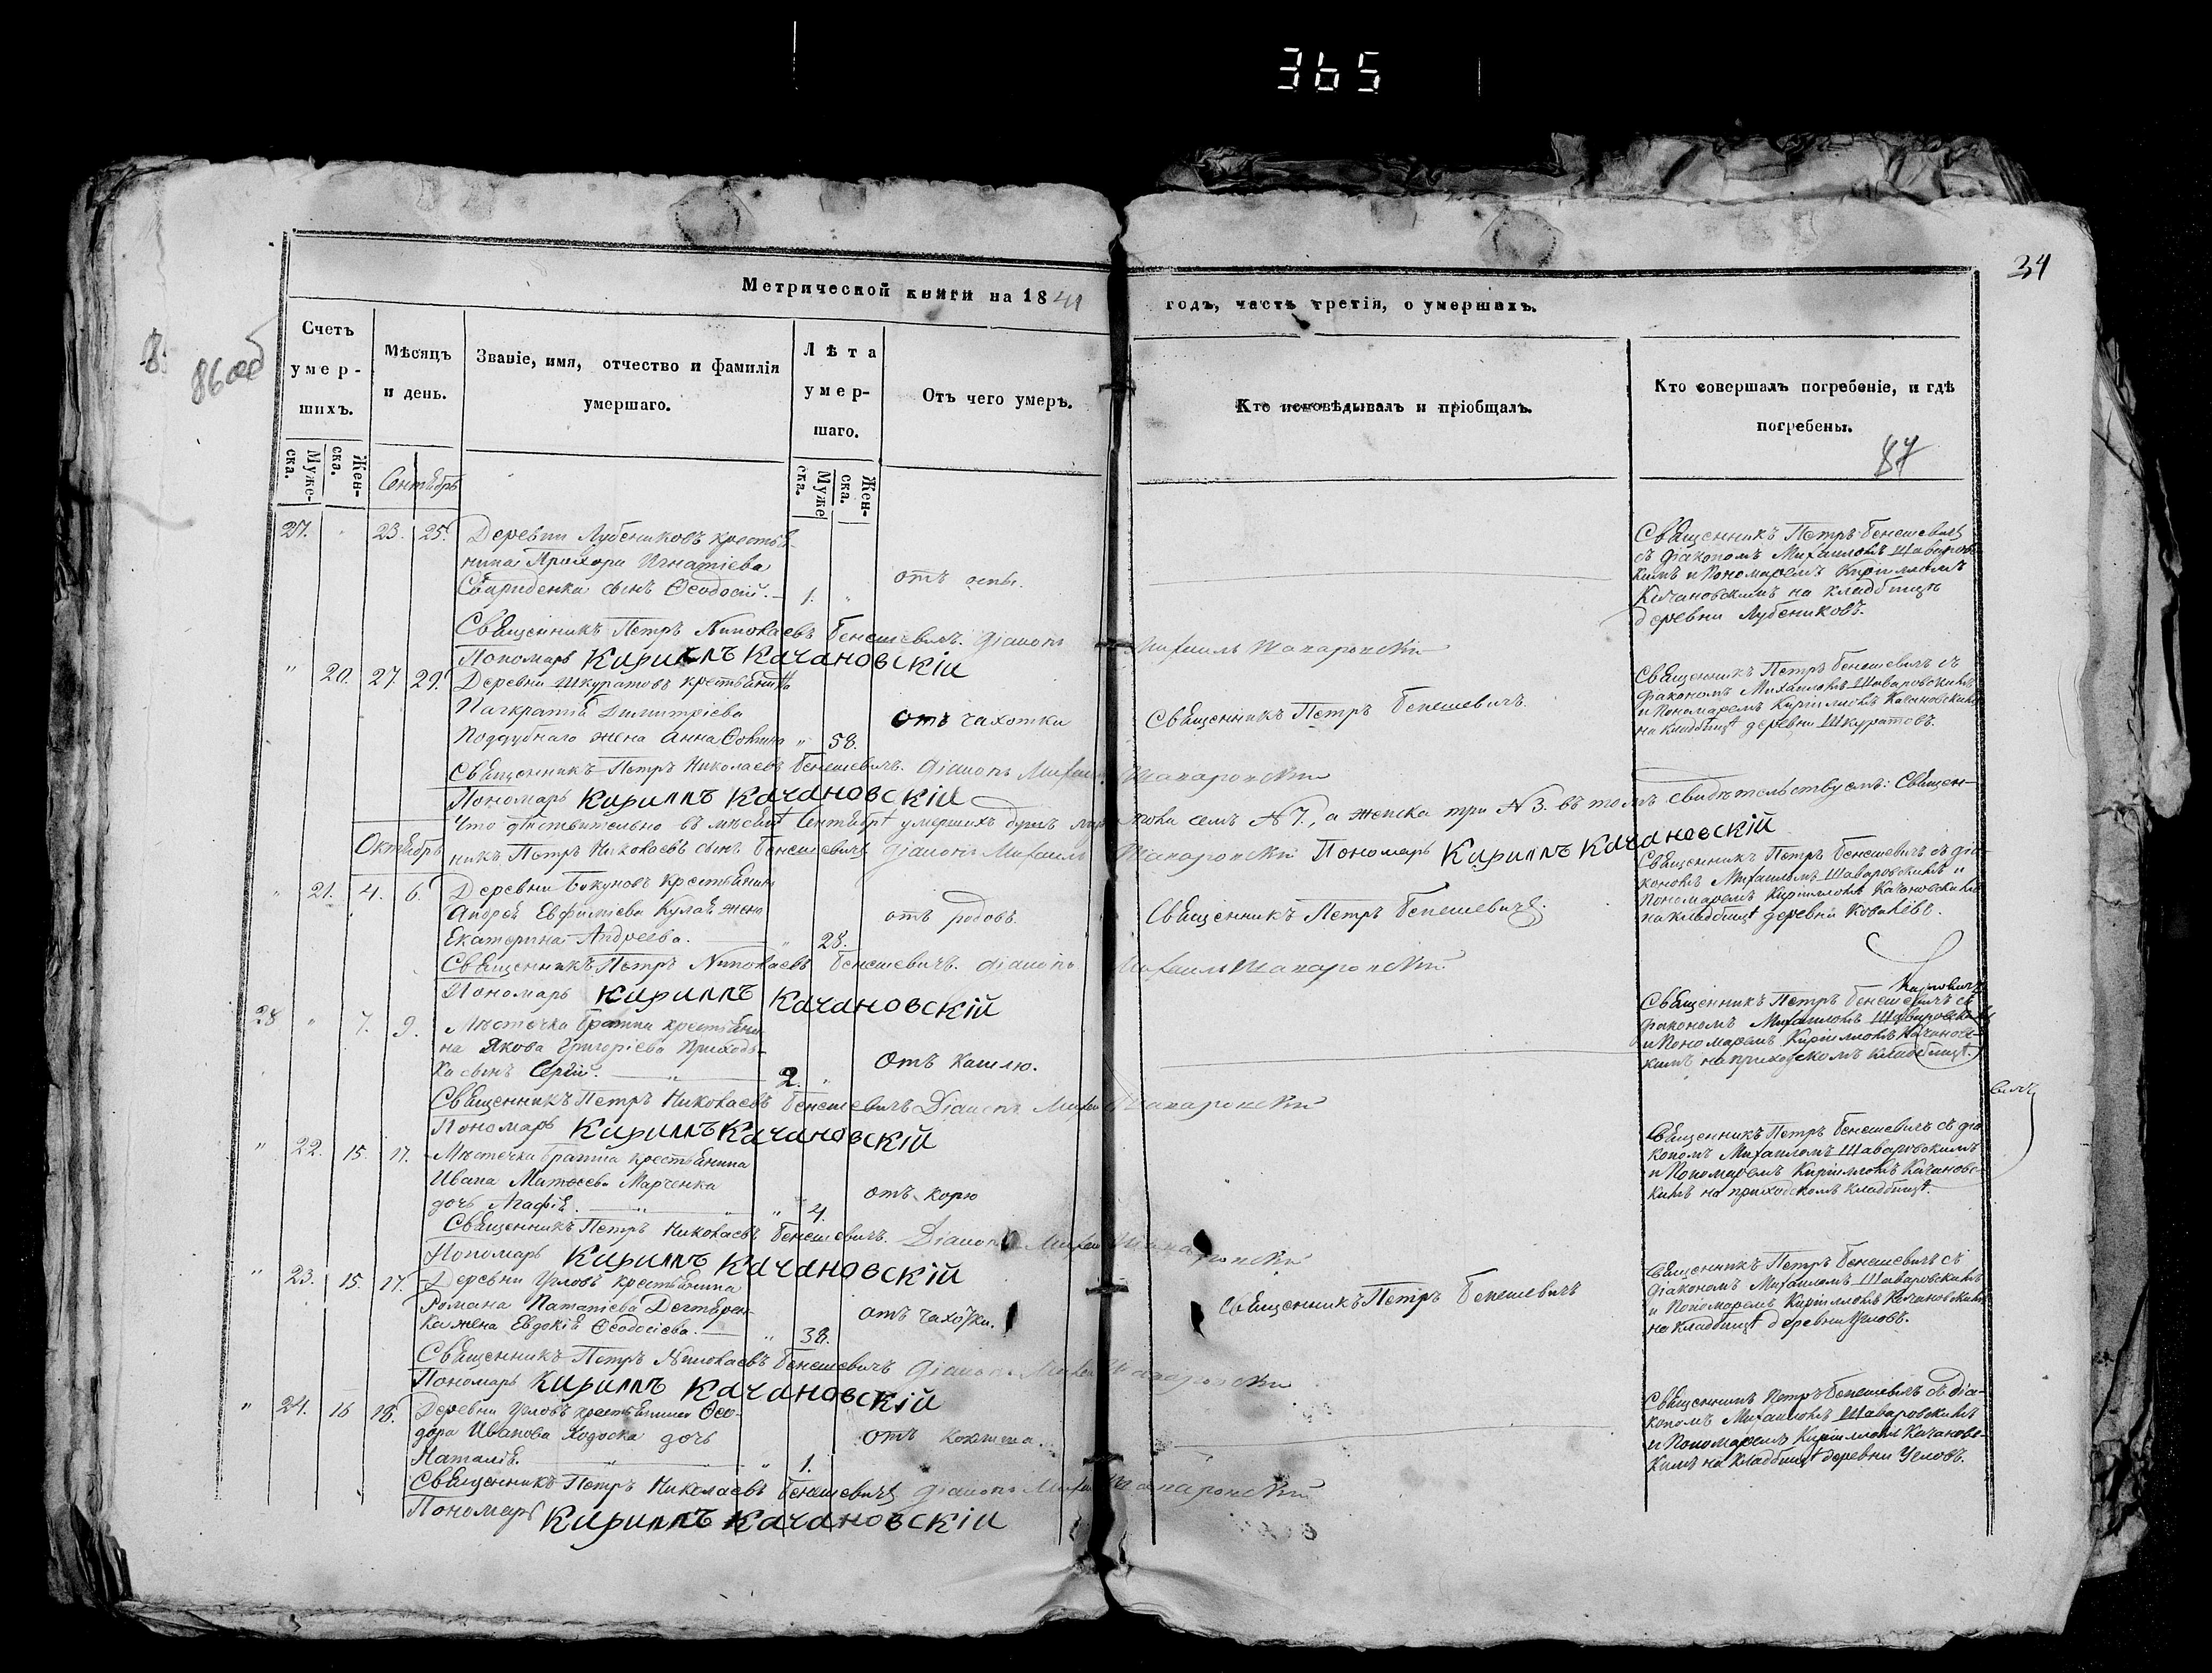 365
34
8.
86 об
Метрической книги на 1841
годъ, часть третія, о умершихъ.
Счетъ умер-шихъ.
Мѣсяцъ и день.
Званіе, имя, отчество и фамилія умершаго.
Лѣта умер-шаго.
Отъ чего умеръ.
Кто исповѣдывалъ и пріобщалъ.
Кто совершалъ погребеніе, и гдѣ погребены.
87
Муже-ска.
Жен-ска.
Муже ска.
Жен-ска.
Сентябрь
27. 23. 25. Деревни Лубениковъ крестья-
нина Прохора Игнатіева
сынъ Ѳеодосій. 1.
отъ оспы.
Священникъ Петръ Бенешевичъ
съ діакономъ Михаиломъ Шаваровс
кимъ и Пономаремъ Кирилломъ
Качановскимъ на кладбищѣ
деревни Лубениковъ.
Священникъ Петръ Николаевъ Бенешевичъ. діаконъ Михаилъ Шаваровскій
Пономарь Кириллъ Качановскій
" 20. 27. 29. Деревни Шкуратовъ крестьянина
Панкратія Димитріева
Поддубнаго жена Анна " 58.
отъ чахотки
Священникъ Петръ Бенешевичъ.
Священникъ Петръ Бенешевичъ съ
діакономъ Михаиломъ Шаваровскимъ
и Пономаремъ Кирилломъ Качановскимъ
на кладбищѣ деревни Шкуратовъ.
Священникъ Петръ Николаевъ Бенешевичъ. діаконъ Михаилъ Шаваровскій
Пономарь Кириллъ Качановскій
Что дѣйствительно въ мѣсяцѣ Сентябрѣ умершихъ душъ мужеска семь № 7., а женска три № 3. въ томъ свидѣтельствуемъ: Священ-
никъ Петръ Николаевъ сынъ Бенешевичъ діаконъ Михаилъ Шаваровскій Пономарь Кириллъ Качановскій
Октябрь
" 21. 4. 6. Деревни Бокуновъ крестьянина
Андрея Евфиміева жена
Екатерина Андреева. " 28.
отъ родовъ.
Священникъ Петръ Бенешевичъ.
Священникъ Петръ Бенешевичъ съ діа-
кономъ Михаиломъ Шаваровскимъ и
Пономаремъ Кирилломъ Качановскимъ
на кладбищѣ деревни Ковалевъ.
Священникъ Петръ Николаевъ Бенешевичъ. діаконъ Михаилъ Шаваровскій
Пономарь Кириллъ Качановскій
28 " 7. 9. Мѣстечка крестьяни-
на Якова Григоріева Приходь-
ка сынъ Сергій. 2. "
отъ кашлю.
Священникъ Петръ Бенешевичъ съ
діакономъ Михаиломъ Шаваровскимъ
и Пономаремъ Кирилломъ Качановс-
кимъ на приходскомъ кладбищѣ.
Священникъ Петръ Николаевъ Бенешевичъ Діаконъ Михаилъ Шаваровскій
Пономарь Кириллъ Качановскій
" 22. 15. 17. Мѣстечка крестьянина
Ивана Матѳеева Марченка
дочь Агафія. " 4.
отъ корю
Священникъ Петръ Бенешевичъ съ діа
кономъ Михаиломъ Шаваровскимъ
и Пономаремъ Кирилломъ Качановс-
кимъ на приходскомъ кладбищѣ.
Священникъ Петръ Николаевъ Бенешевичъ. Діаконъ Михаилъ Шаваровскій
Пономарь Кириллъ Качановскій
" 23. 15. 17. Деревни Угловъ крестьянина
Романа Патапіева Дегтярен-
ка жена Евдокія Ѳеодосіева. " 38.
отъ чахотки.
Священникъ Петръ Бенешевичъ
Священникъ Петръ Бенешевичъ съ
діакономъ Михаиломъ Шаваровскимъ
и Пономаремъ Кирилломъ Качановскимъ
на кладбищѣ деревни Угловъ.
Священникъ Петръ Николаевъ Бенешевичъ діаконъ Михаилъ Шаваровскій
Пономарь Кириллъ Качановскій
" 24. 16 18. Деревни Угловъ крестьянина Ѳео-
дора Иванова Ходоска дочь
Наталія. " 1.
отъ
Священникъ Петръ Бенешевичъ съ діа-
кономъ Михаиломъ Шаваровскимъ
и Пономаремъ Кирилломъ Качановс-
кимъ на кладбищѣ деревни Угловъ.
Священникъ Петръ Николаевъ Бенешевичъ діаконъ Михаилъ Шаваровскій
Пономарь Кириллъ Качановскій